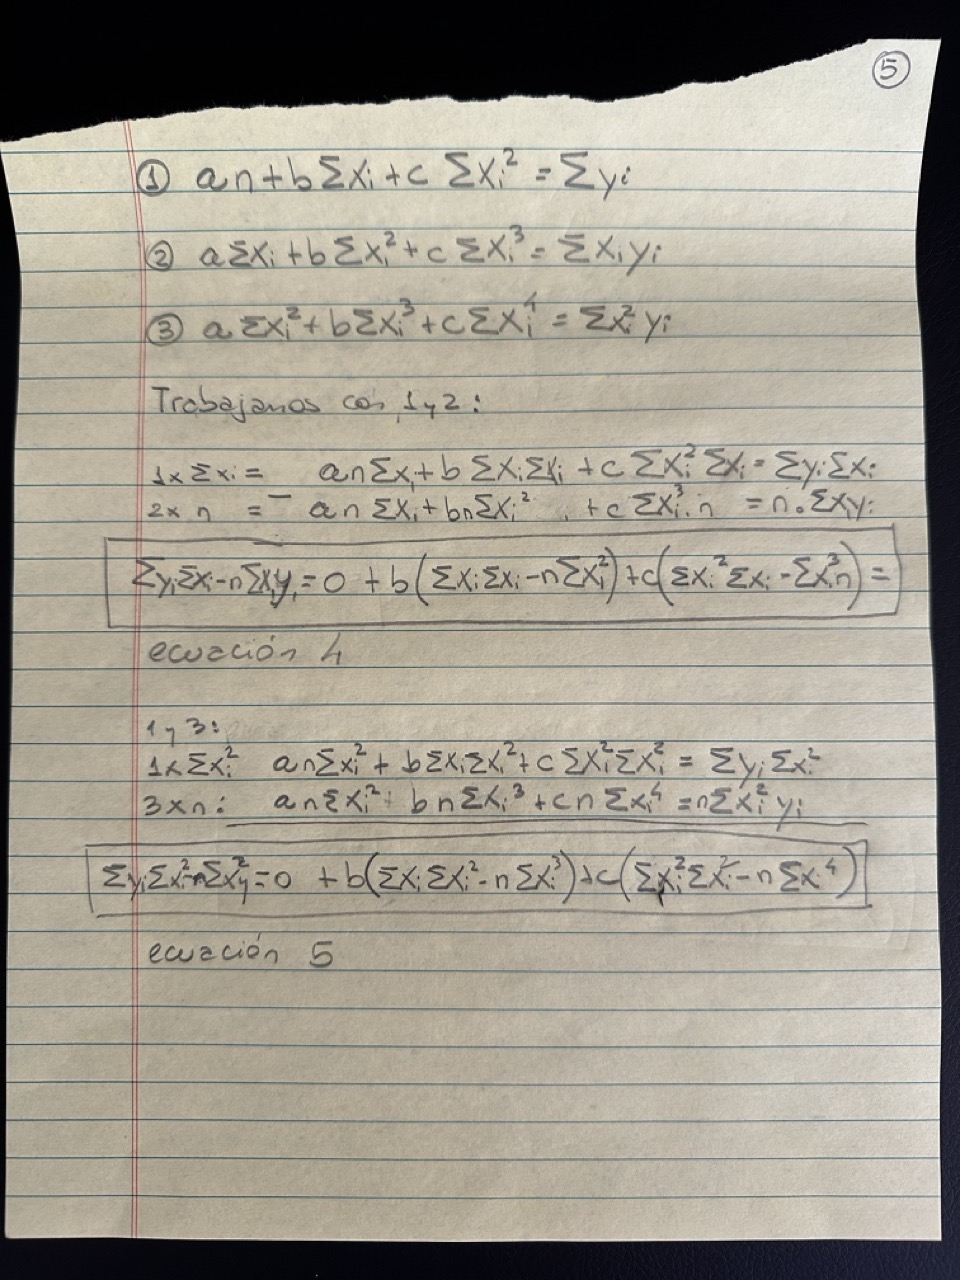 5
① an+bΣxi+cΣxi²=Σyi
② aΣxi+bΣxi²+cΣxi³=Σxiyi
③ aΣxi²+bΣxi³+cΣxi⁴=Σxi²yi
Trabajamos con 1y2:
1xΣxi= anΣxi+bΣxiΣxi+cΣxi²Σxi=ΣyiΣxi
2x n =- anΣxi+bnΣxi²+cΣxi³.n =n.Σxiyi
ΣyiΣxi-nΣxiyi=0 +b(ΣxiΣxi-nΣxi²)+c(Σxi²Σxi-Σxi³n)=
ecuación 4
1y3:
1xΣxi² anΣxi²+bΣxiΣxi²+cΣxi²Σxi²=ΣyiΣxi²
3xn: anΣxi²+bnΣxi³+cnΣxi⁴=nΣxi²yi
ΣyiΣxi²-nΣxi²y=0 +b(ΣxiΣxi²-nΣxi³)+c(Σxi²Σxi²-nΣxi⁴)
ecuación 5